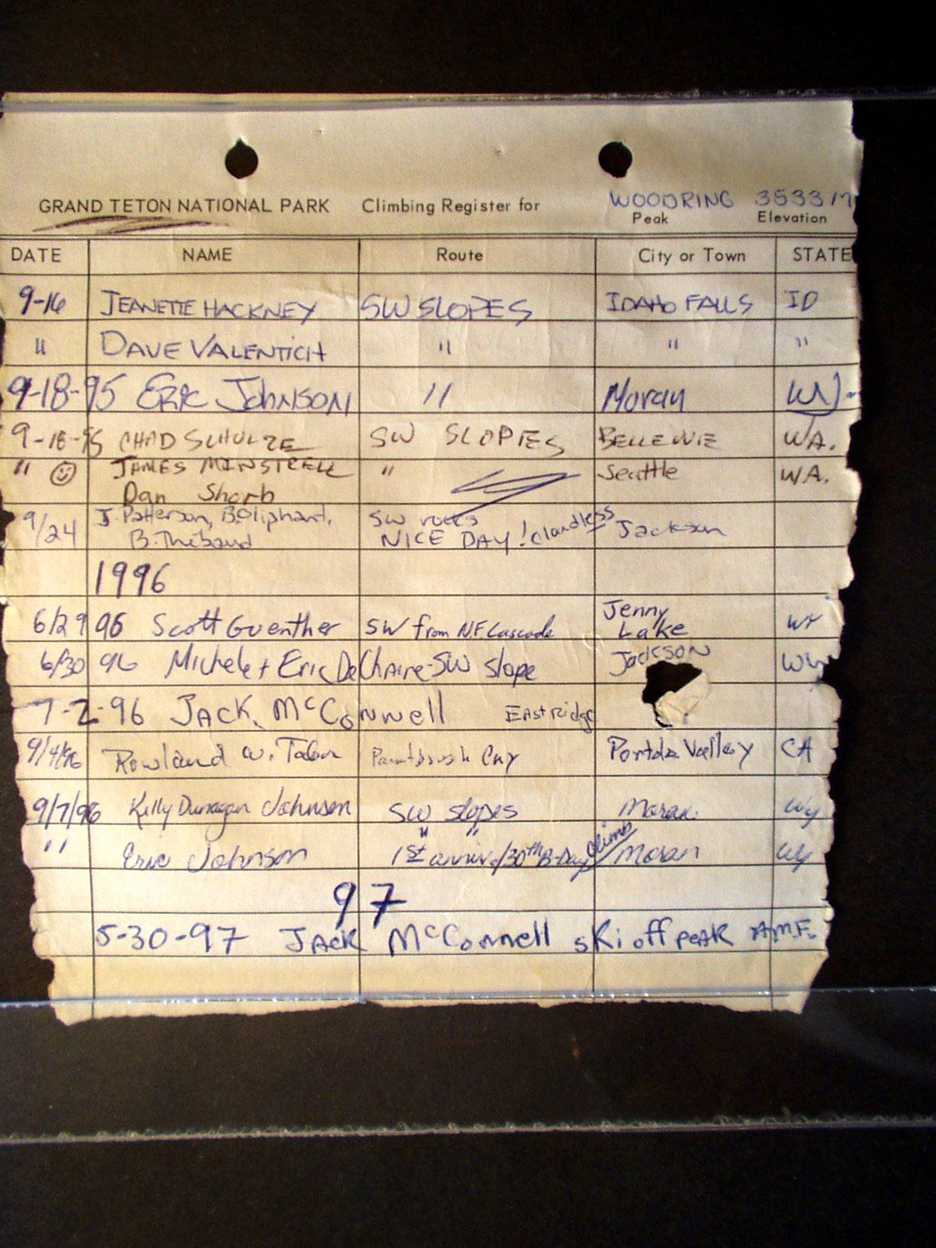 GRAND TETON NATIONAL PARK Climbing Register for WOODRING 3533 M
Peak Elevation
DATE NAME Route City or Town STATE
9-16 JEANETTE HACKNEY SW SLOPES IDAHO FALLS ID
" DAVE VALENTICH " " "
9-18-95 ERIC JOHNSON " Moran WY
9-18-95 CHAD SCHULZE SW SLOPIES BELLEVUE WA.
" JAMES MINSTRELL " Seattle WA.
Dan Shorb
9/24 J. Patterson, B. Oliphant, SW Jackson
B. Thibaud NICE DAY! cloudless
1996
6/29 96 Scott Guenther SW from N.F. Cascade Jenny Lake WY
6/30 96 Michele + Eric DeChaire-SW slope Jackson WY
7-2-96 JACK McConnell East Ridge
9/4/96 Rowland W. Tabor Paintbrush Cny Portola Valley CA
9/7/96 Killy Dunagan Johnson SW slopes Moran WY
" Eric Johnson " " Moran WY
1st anniv./30th B-Day climb
97
5-30-97 JACK McConnell ski off peak A.M.F.